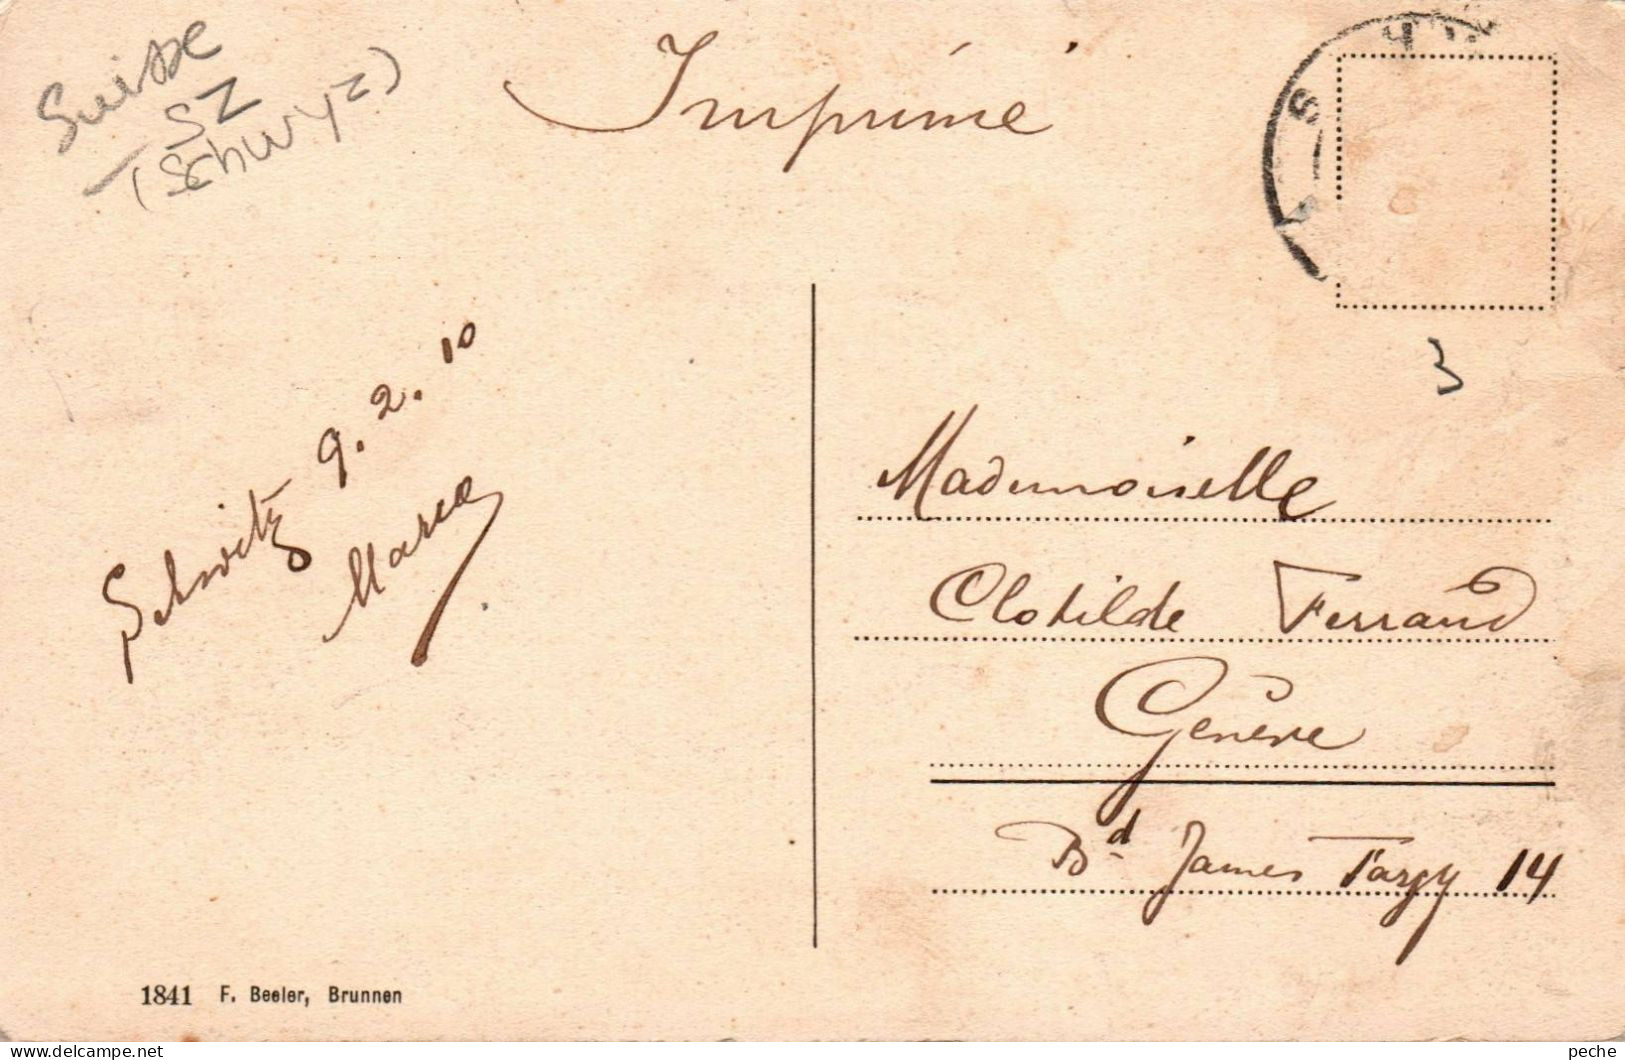 Suisse
SZ
(Schwyz)
Imprimé
3
Schwitz 9.2.10
Mademoiselle
Clotilde Ferrand
Genève
Bd James Fazy 14
1841 F. Beeler, Brunnen
peche © Delcampe.net